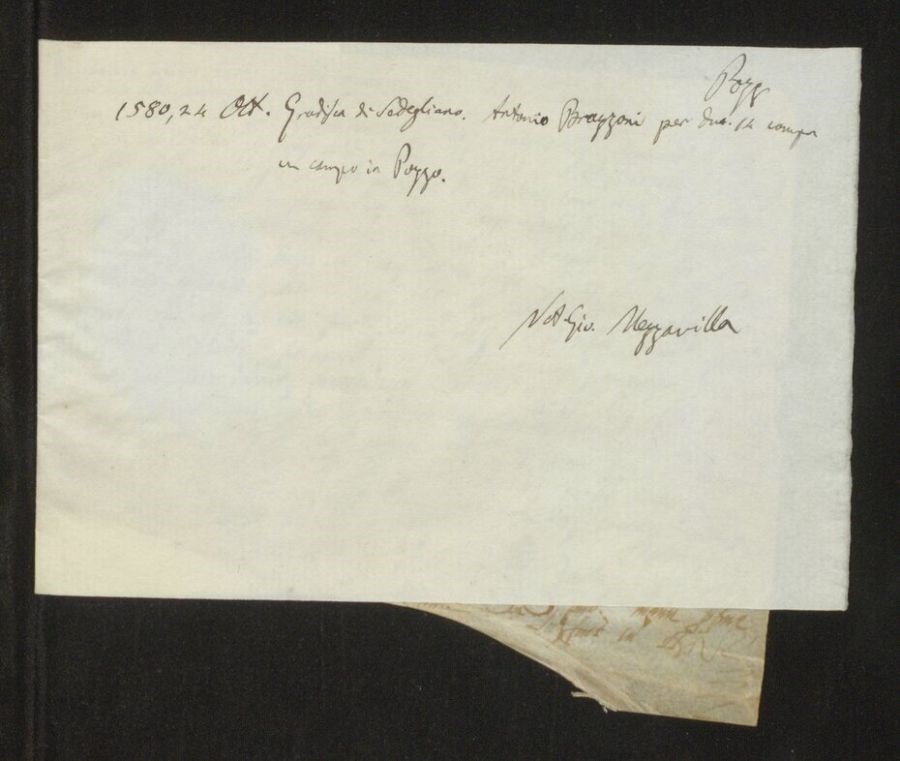 Pozzo
1580, 24 Ott. Gradisca di Sedegliano. Antonio Bragzoni per duc. 14 compra
un campo in Pozzo.
Not. Gio. Mezzavilla